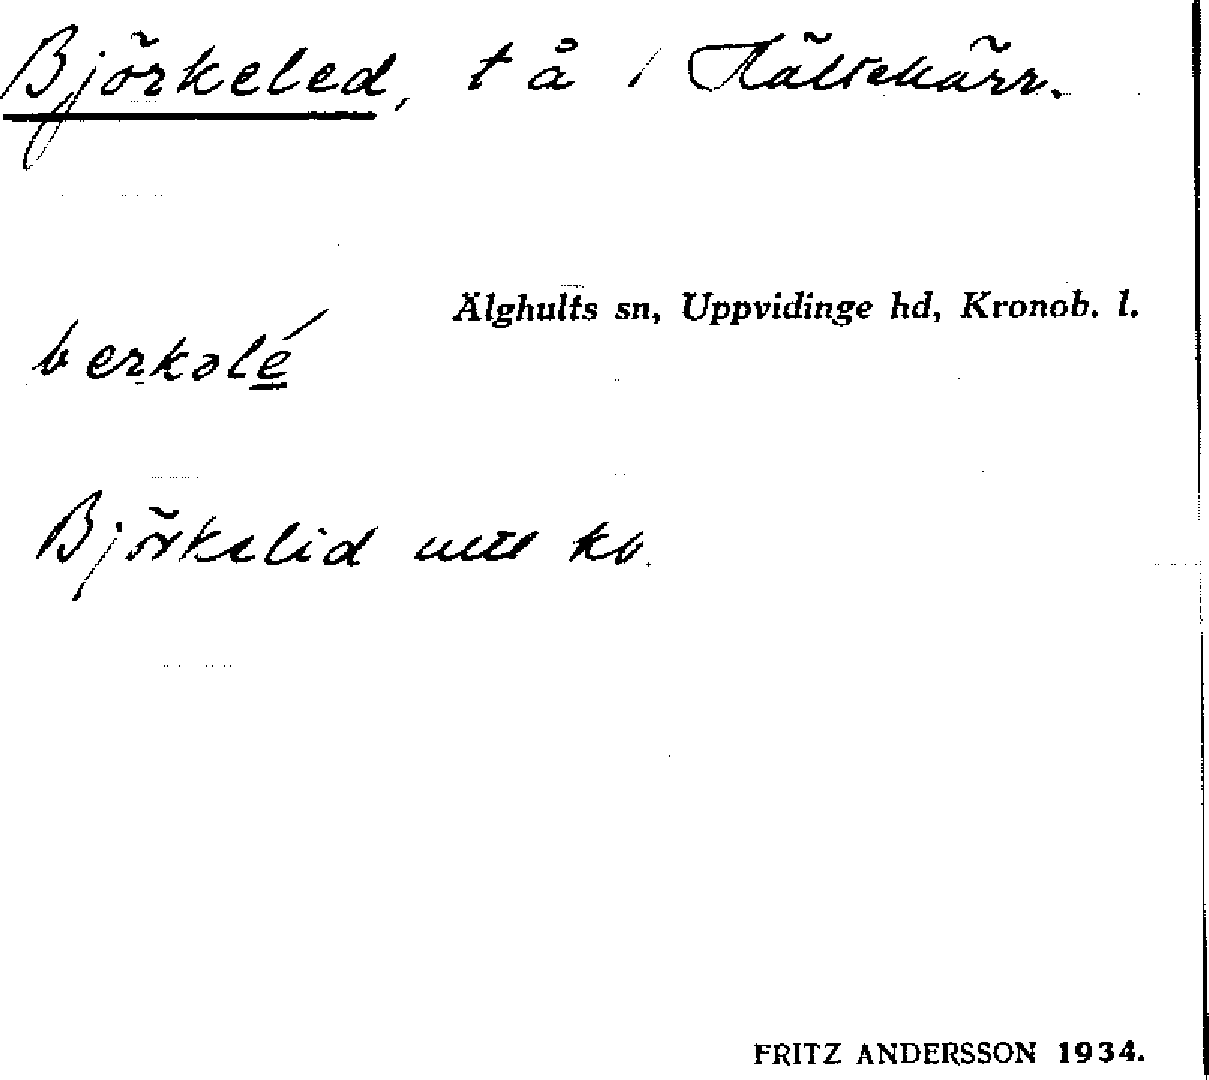 Björkeled, t å / Hältekärr.
Älghults sn, Uppvidinge hd, Kronob. l.
berkəlé
Björkelid kv.
FRITZ ANDERSSON 1934.